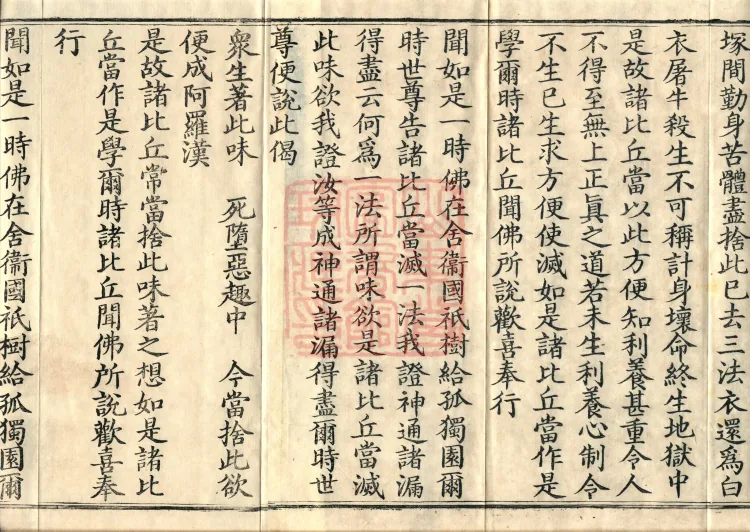 塚間勤身苦體盡捨此已去三法衣還爲白
衣屠牛殺生不可稱計身壞命終生地獄中
是故諸比丘當以此方便知利養甚重令人
不得至無上正眞之道若未生利養心制令
不生已生求方便使滅如是諸比丘當作是
學爾時諸比丘聞佛所說歡喜奉行
聞如是一時佛在舍衞國祇樹給孤獨園爾
時世尊告諸比丘當滅一法我證神通諸漏
得盡云何爲一法所謂味欲是諸比丘當滅
此味欲我證汝等成神通諸漏得盡爾時世
尊便說此偈
衆生著此味　死墮惡趣中　今當捨此欲
便成阿羅漢
是故諸比丘常當捨此味著之想如是諸比
丘當作是學爾時諸比丘聞佛所說歡喜奉
行
聞如是一時佛在舍衞國祇樹給孤獨園爾